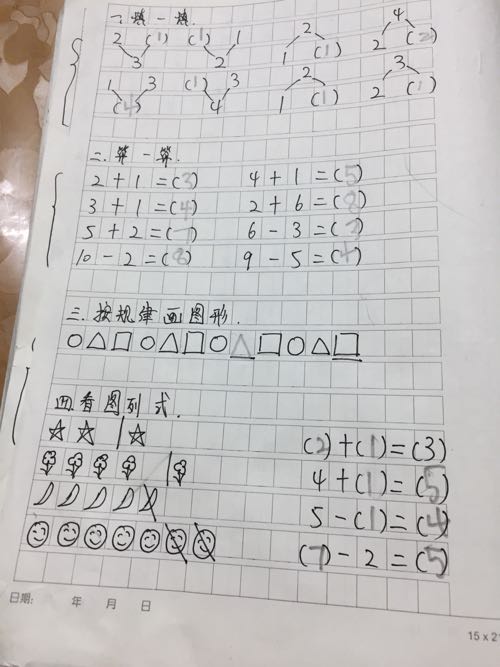 一、填一填.
2 (1) (1) 1 2 4
3 2 1 (1) 2 (2)
1 3 (1) 3 2 3
(4) 4 1 (1) 2 (1)
二.算一算.
2+1=(3) 4+1=(5)
3+1=(4) 2+6=(8)
5+2=(7) 6-3=(3)
10-2=(8) 9-5=(4)
三.按规律画图形.
四看图列式.
(2)+(1)=(3)
4+(1)=(5)
5-(1)=(4)
(7)-2=(5)
日期: 年 月 日
15 x 2